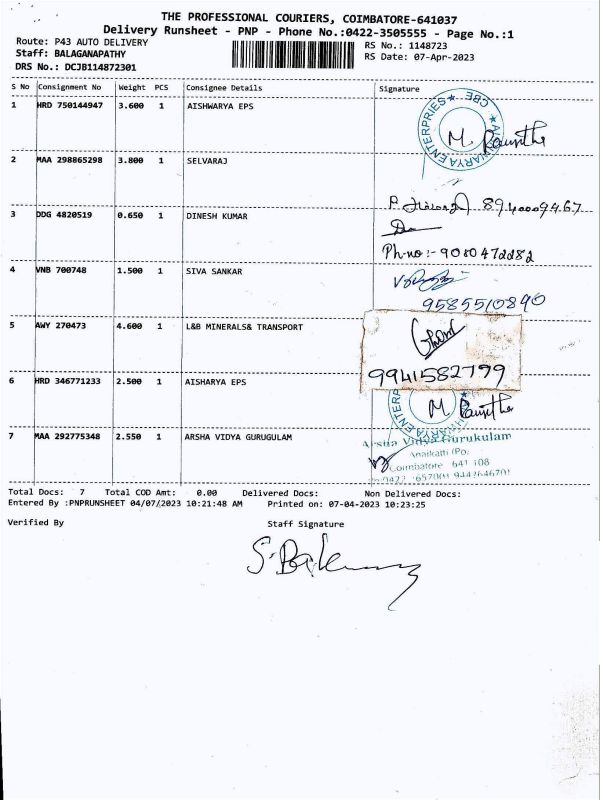 THE PROFESSIONAL COURIERS, COIMBATORE-641037
Delivery Runsheet - PNP - Phone No.:0422-3505555 - Page No.:1
Route: P43 AUTO DELIVERY
RS No.: 1148723
Staff: BALAGANAPATHY
RS Date: 07-Apr-2023
DRS No.: DCJB114872301
S No Consignment No Weight PCS Consignee Details Signature
1 HRD 750144947 3.600 1 AISHWARYA EPS
ENTERPRIES ★ CBE ★
M.
2 MAA 298865298 3.800 1 SELVARAJ
P. 8940009467
3 DDG 4820519 0.650 1 DINESH KUMAR
Ph-no:- 9080472282
4 VNB 700748 1.500 1 SIVA SANKAR
9585510890
5 AWY 270473 4.600 1 L&B MINERALS& TRANSPORT
9941582799
6 HRD 346771233 2.500 1 AISHARYA EPS
M.
7 MAA 292775348 2.550 1 ARSHA VIDYA GURUGULAM
Arsha Vidya Gurukulam
Anaikatti (Po)
Coimbatore 641 108
Total Docs: 7 Total COD Amt: 0.00 Delivered Docs: Non Delivered Docs:
Entered By :PNPRUNSHEET 04/07/2023 10:21:48 AM Printed on: 07-04-2023 10:23:25
Verified By Staff Signature